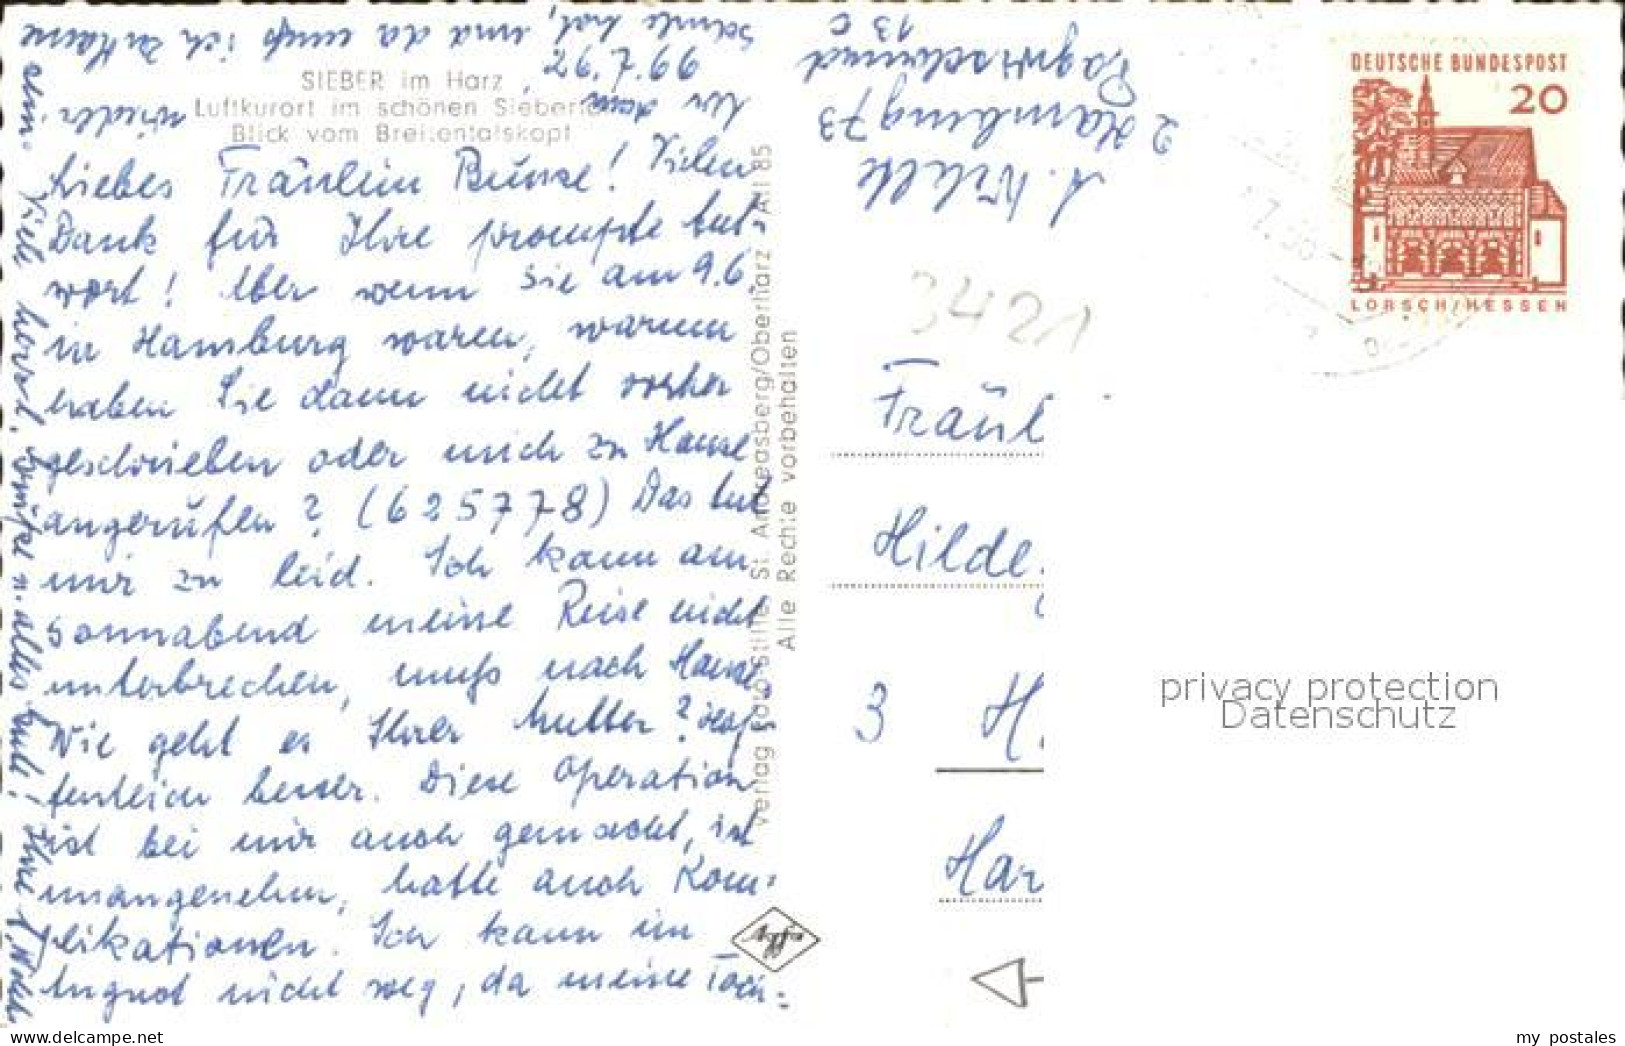 SIEBER im Harz
Luftkurort im schönen Siebertal
Blick vom Breitentalskopf
Liebes Fräulein Bunse! Vielen
Dank für Ihre prompte Ant-
wort! Aber wenn Sie am 9.6.
in Hamburg waren, warum
haben Sie dann nicht vorher
geschrieben oder mich zu Hause
angerufen? (625778) Das tut
mir zu leid. Ich kann am
Sonnabend meine Reise nicht
unterbrechen, muß nach Hause.
Wie geht es Ihrer Mutter? Hof-
fentlich besser. Diese Operation
ist bei mir auch gemacht, ist
unangenehm, hatte auch Kom-
plikationen. Ich kann im
August nicht weg, da meine Toch-
wieder
vor dem
99.7.92,
und da muß ich zu Hause
sein. Viele herzl. Grüße u. alles Gute! Ihre A. Witt
Verlag Foto-Stille St. Andreasberg/Oberharz - AH 85
Alle Rechte vorbehalten
Agfa
2 Hamburg 73
13 c
DEUTSCHE BUNDESPOST
20
LORSCH/HESSEN
3421
Fräul
Hilde
3 H.
Har
privacy protection
Datenschutz
my postales